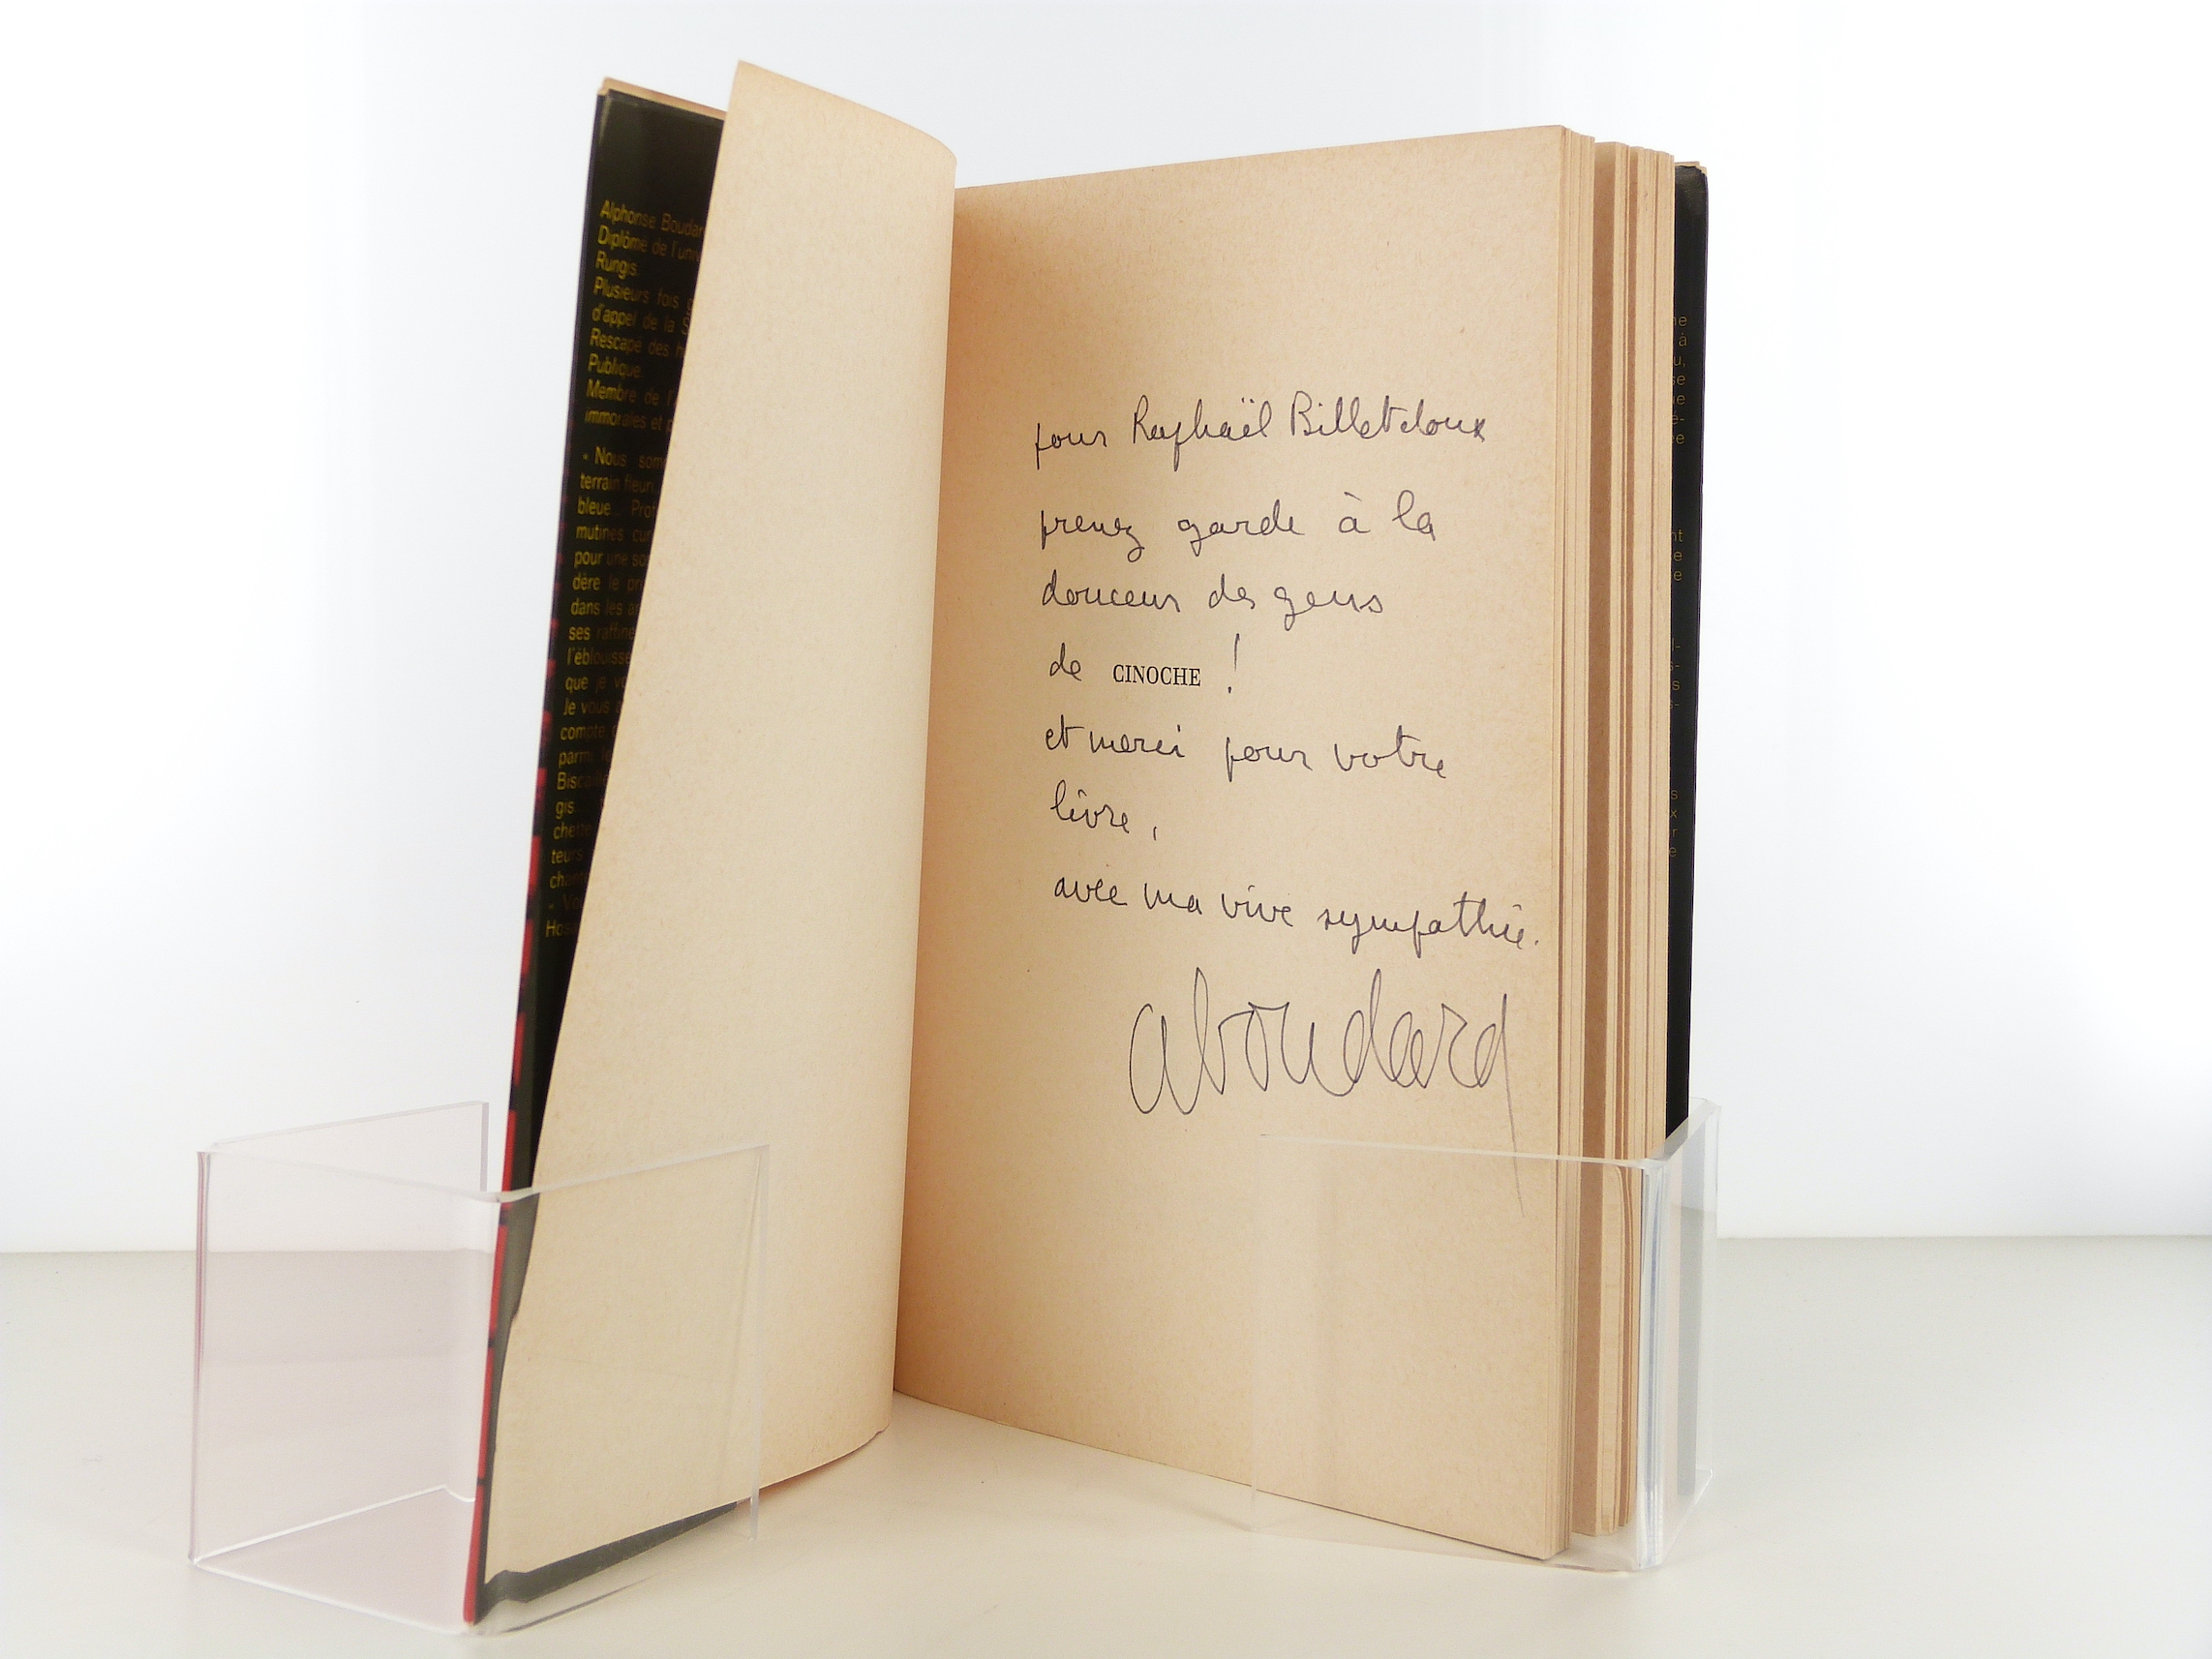 Alphonse Boudar
Diplôme de l'univ
Rungis.
Plusieurs fois g
d'appel de la S
Rescapé des h
Publique.
Membre de l'
immorales et p
« Nous som
terrain fleuri,
bleue... Prof
mutines cur
pour une so
dère le pré
dans les a
ses raffine
l'éblouisse
que je v
Je vous
compte,
parmi le
Bis
gis.
chette
teurs
chant
« Vo
Hos
pour Raphaël Billetdoux
prenez garde à la
douceur des gens
de CINOCHE !
et merci pour votre
livre,
avec ma vive sympathie.
aboudard